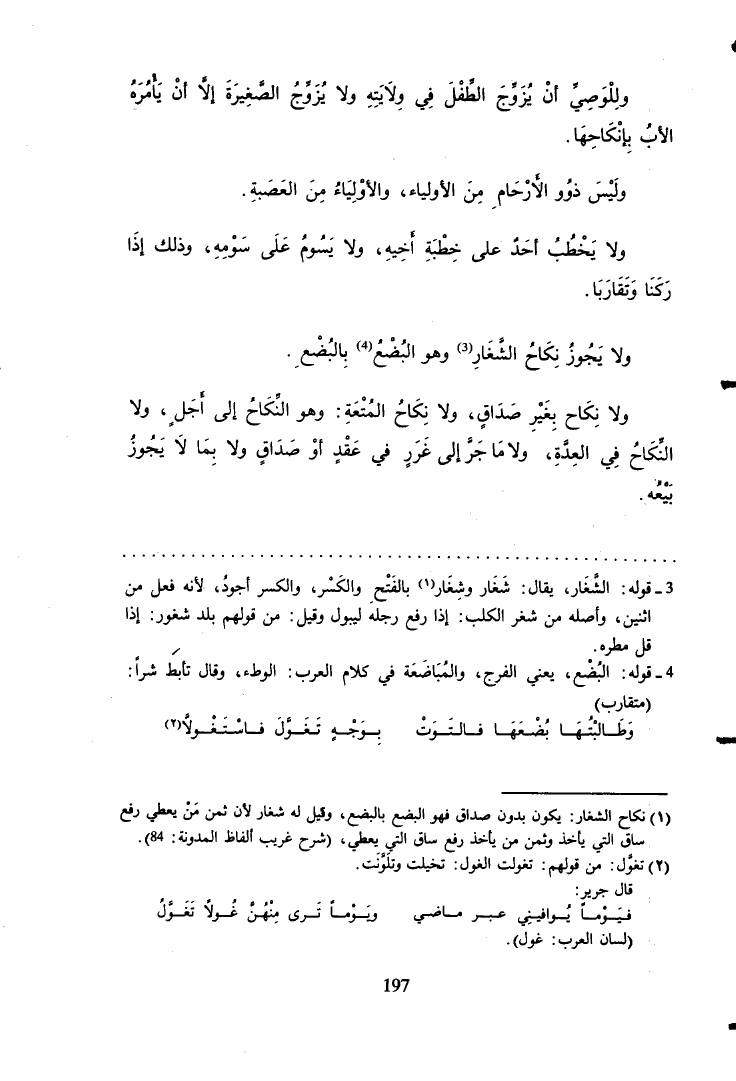 ولِلْوَصِيِّ أنْ يُزَوِّجَ الطِّفْلَ فِي وِلَايَتِهِ ولا يُزَوِّجُ الصَّغِيرَةَ إلاَّ أنْ يَأْمُرَهُ
الأبُ بِإنْكَاحِهَا.
ولَيْسَ ذوُو الأَرْحَامِ مِنَ الأولياء، والأوْلِيَاءُ مِنَ العَصَبةِ.
ولا يَخْطُبُ أحَدٌ على خِطْبَةِ أَخيهِ، ولا يَسُومُ عَلَى سَوْمِهِ، وذلك إذَا
رَكَنَا وَتَقَارَبَا.
ولا يَجُوزُ نِكَاحُ الشَّغَارِ(3) وهو البُضْعُ(4) بِالبُضْعِ.
ولا نِكَاح بِغَيْرِ صَدَاقٍ، ولا نِكَاحُ المُتْعَةِ: وهو النِّكَاحُ إلى أَجَلٍ، ولا
النِّكَاحُ فِي العِدَّةِ، ولا مَا جَرَّ إلى غَرَرٍ في عَقْدٍ أوْ صَدَاقٍ ولا بِمَا لَا يَجُوزُ
بَيْعُه.
3 ـ قوله: الشَّغَار، يقال: شَغَار وشِغَار(١) بالفَتْحِ والكَسْر، والكسر أجودُ، لأنه فعل من
اثنين، وأصله من شغر الكلب: إذا رفع رجله ليبول وقيل: من قولهم بلد شغور: إذا
قل مطره.
4 ـ قوله: البُضْع، يعني الفرج، والمُبَاضَعَة في كلام العرب: الوطء، وقال تأبط شراً:
(متقارب)
وَطَـالَبْتُـهَـا بُضْـعَهَـا فـالـتَـوَتْ بِـوَجْـهٍ تَـغَـوَّلَ فـاسْـتَـغْـوِلاَ(٢)
(١) نكاح الشغار: يكون بدون صداق فهو البضع بالبضع، وقيل له شغار لأن ثمن مَنْ يعطي رفع
ساق التي يأخذ وثمن من يأخذ رفع ساق التي يعطي، (شرح غريب ألفاظ المدونة: 84).
(٢) تغوَّل: من قولهم: تغولت الغول: تخيلت وتلَوَّنَت.
قال جرير:
فـيَـوْمـاً يُـوافيني غيـر مـاضي ويَـوْمـاً تـرى مِنْهُـنَّ غُـولاً تَغَـوَّلُ
(لسان العرب: غول).
197